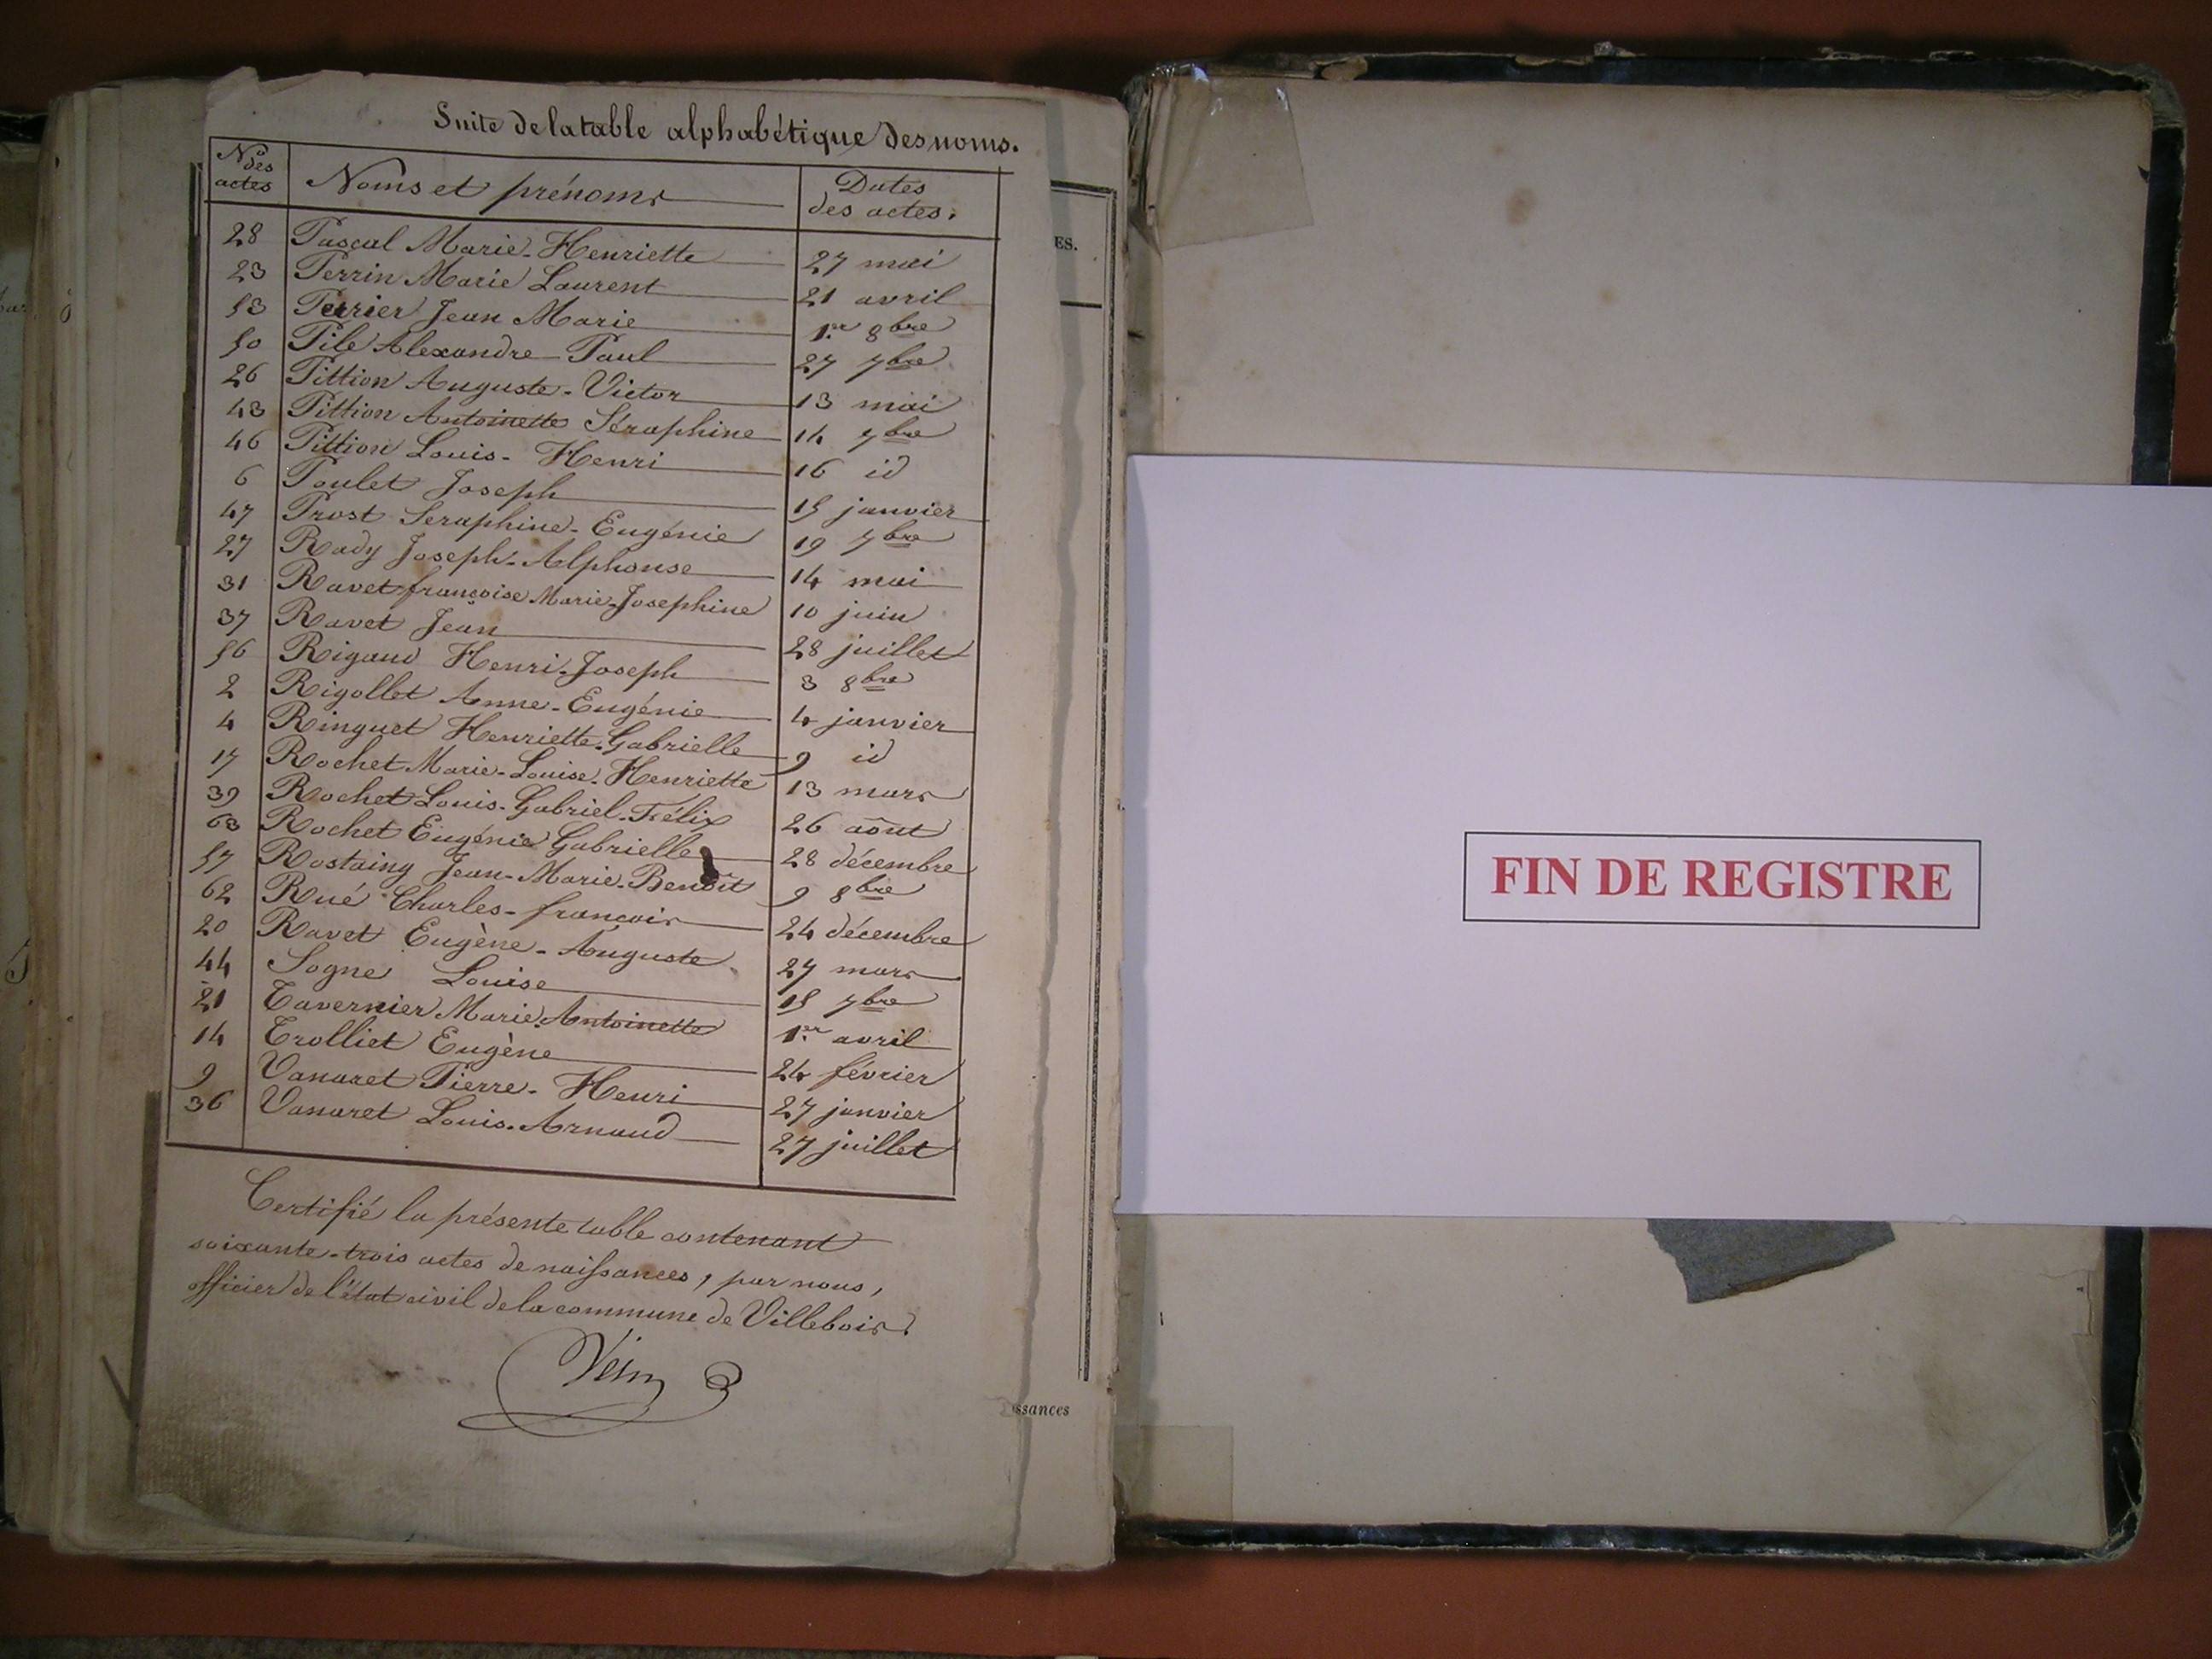 Suite de la table alphabétique des noms.
Nos des actes Noms et prénoms Dates des actes.
28 Pascal Marie-Henriette 27 mai
23 Perrin Marie Laurent 21 avril
53 Perrier Jean Marie 1.er 8bre
50 Pile Alexandre-Paul 27 7bre
26 Pittion Auguste-Victor 13 mai
43 Pittion Antoinette Séraphine 14 7bre
46 Pittion Louis-Henri 16 id
6 Poulet Joseph 15 janvier
47 Prost Seraphine-Eugénie 19 7bre
27 Rady Joseph-Alphonse 14 mai
31 Ravet françoise Marie-Josephine 10 juin
37 Ravet Jean 28 juillet
56 Rigaud Henri-Joseph 3 8bre
2 Rigollet Anne-Eugénie 4 janvier
4 Ringuet Henriette-Gabrielle 9 id
17 Rochet Marie-Louise-Henriette 13 mars
39 Rochet Louis-Gabriel-Félix 26 août
63 Rochet Eugénie Gabrielle 28 décembre
57 Rostaing Jean-Marie-Benoît 9 8bre
62 Rué Charles-françois 24 décembre
20 Ravet Eugène-Auguste 27 mars
44 Sogne Louise 15 7bre
21 Tavernier Marie Antoinette 1.er avril
14 Trolliet Eugène 24 février
9 Vanaret Pierre-Henri 27 janvier
36 Vanaret Louis-Arnaud 27 juillet
Certifié la présente table contenant
soixante-trois actes de naissances, par nous,
officier de l'état civil de la commune de Villebois.
ES.
ssances
FIN DE REGISTRE